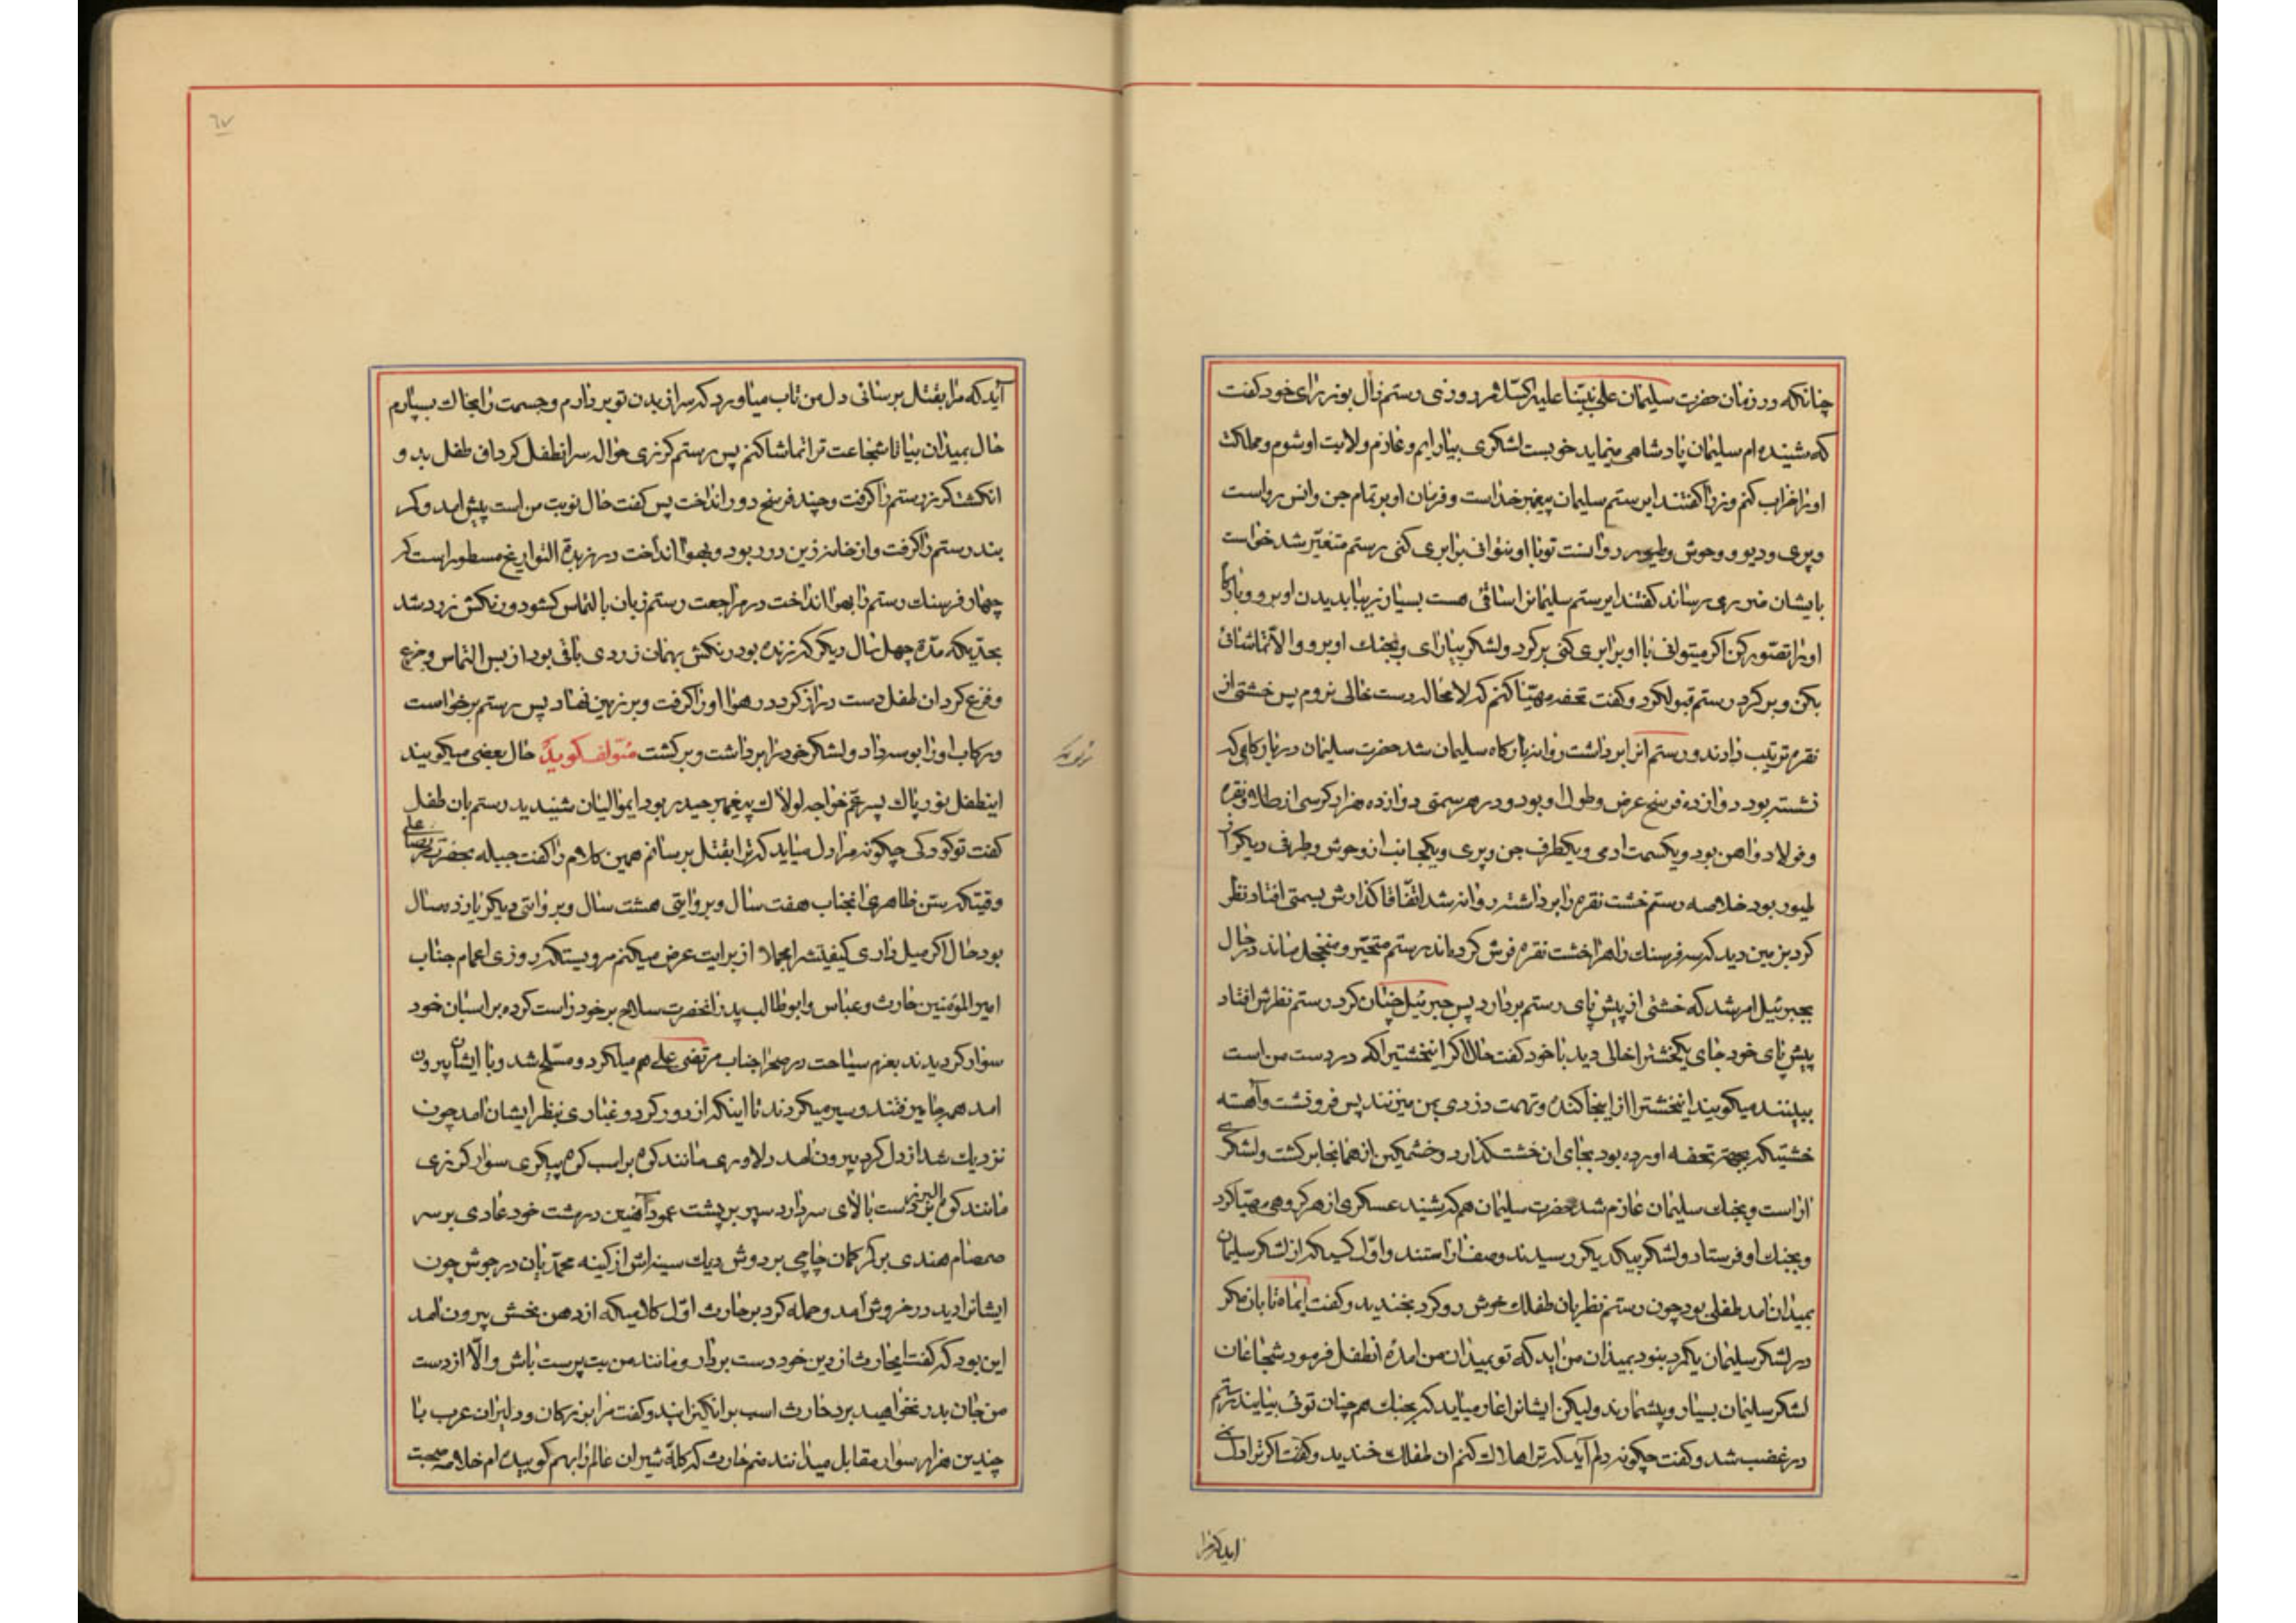 چنانکه در زمان حضرت سلیمان علی نبینا علیه السلام روزی رستم زال بوزرای خود گفت
که شنیده ام سلیمان پادشاهی مینماید خوبست لشکری بیارایم و عازم ولایت او شوم و مملکت
او را خراب کنم وزرا گفتند ای رستم سلیمان پیغمبر خداست و فرمان او بر تمام جن و انس رواست
و پری و دیو و وحوش و طیور روا نیست تو با او نتوانی برابری کنی رستم متغیر شد خواست
بایشان ضرری رساند گفتند ای رستم سلیمانرا اساقی هست بسیار زیبا بدیدن او برو و بارگاه
او را تصور کن اگر میتوانی با او برابری کنی برگرد و لشکر بیارای و بجنگ او برو و الا تماشائی
بکن و برگرد رستم قبول کرد و گفت تحفه مهیا کنم که لامحاله دست خالی نروم پس خشتی از
نقره ترتیب دادند و رستم انرا برداشت روانه بارگاه سلیمان شد حضرت سلیمان در بارگاهی که
نشسته بود دوازده فرسخ عرض و طول او بود و در هر سمتی دوازده هزار کرسی از طلا و نقره
و فولاد و اهن بود و یکسمت ادمی و یکطرف جن و پری و یکجانب ان وحوش و طرف دیگر از
طیور بود خلاصه رستم خشت نقره را برداشته روانه شد اتفاقا گذارش بسمتی افتاد نظر
کرد بزمین دید که سه فرسنگ راه را خشت نقره فرش کرده اند رستم متحیر و منخجل ماند در حال
بجبرئیل امر شد که خشتی از پیش پای رستم بردارد پس جبرئیل چنان کرد رستم نظرش افتاد
پیش پای خود جای یکخشترا خالی دید با خود گفت حالا اگر اینخشتیرا که در دست من است
ببینند میگویند اینخشترا از اینجا کنده و تهمت دزدی بمن میزنند پس فرو نشت و آهسته
خشتیکه بجهة تحفه اورده بود بجای ان خشت گذارد و خشمگین از همانجا برگشت و لشکری
اراست و بجنگ سلیمان عازم شد حضرت سلیمان هم که شنید عسکری از هر گروهی مهیا کرد
و بجنگ او فرستاد و لشکر بیکدیگر رسیدند و صف اراستند و اول کسیکه از لشکر سلیمان
بمیدان امد طفلی بود چون رستم نظر بان طفلک خوش رو کرد بخندید و گفت ایماه تابان مگر
در لشکر سلیمان یکمرد نبود بمیدان من اید که تو بمیدان من امدهٔ انطفل فرمود شجاعان
لشکر سلیمان بسیار و بیشمارند ولیکن ایشانرا عار میاید که بجنگ همچنان توئی بیایند رستم
در غضب شد و گفت چگونه دلم آید که ترا هلاک کنم ان طفلک خندید و گفت اگر ترا دل نمی
اید که مرا
٦٧
آید که مرا بقتل برسانی دل من تاب میاورد که سر از بدن تو بردارم و جسمت را بخاک بسپارم
حال بمیدان بیا تا شجاعت ترا تماشا کنم پس رستم گرزی حواله سر انطفل کرد ان طفل بدو
انگشت گرز رستم را گرفت و چند فرسخ دور انداخت پس گفت حال نوبت من است پیش امد و کمر
بند رستم را گرفت و از خانه زین در ربود و بهوا انداخت در زبدة التواریخ مسطور است که
چهار فرسنگ رستم را بهوا انداخت در مراجعت رستم زبان بالتماس گشود و رنگش زرد شد
بحدیکه مدة چهل سال دیگر که زنده بود رنگش بهمان زردی باقی بود از بس التماس و جزع
و فزع کرد ان طفل دست دراز کرد در هوا او را گرفت و بر زمین نهاد پس رستم برخواست
و رکاب او را بوسه داد و لشکر خود را برداشت و برگشت مؤلف گوید حال بعضی میگویند
اینطفل نور پاک پسر عم خواجه لولاک پیغمبر حیدر بود ایموالیان شنیدید رستم بان طفل
گفت تو کودکی چگونه مرا دل میاید که ترا بقتل برسانم همین کلام را گفت جبله بحضرت مرتضی علی
وقتیکه سن ظاهری انجناب هفت سال و بروایتی هشت سال و بروایتی دیگر یازده سال
بود حال اگر میل داری کیفیتشرا مجملا از برایت عرض میکنم مرویستکه روزی اعمام جناب
امیر المؤمنین حارث و عباس و ابوطالب پدر انحضرت سلاح بر خود راست کرده بر اسبان خود
سوار گردیدند بعزم سیاحت در صحرا جناب مرتضی علی هم میل کرد و مسلح شد و با ایشان بیرون
امد همه جا میرفتند و سیر میکردند تا اینکه از دور گرد و غباری بنظر ایشان امد چون
نزدیک شد از دل گرد بیرون امد دلاوری مانند کوه بر اسب کوه پیکری سوار گرزی
مانند کوه البرز بر دست بالای سر دارد سپر بر پشت عمود آهنین در مشت خود عادی بر سر
صمصام هندی بر کمر کمان چاچی بر دوش دیگ سینه اش از کینه محمدیان در جوش چون
ایشانرا دید در خروش آمد و حمله کرد بر حارث اول کلامیکه از دهن نحسش بیرون امد
این بود که گفت ایحارث از دین خود دست بردار و مانند من بت پرست باش و الا از دست
من جان بدر نخواهید برد حارث اسب برانگیزانید و گفت مرا بزرگان و دلیران عرب با
چندین هزار سوار مقابل میدانند منم حارث که کلهٔ شیران عالم را بهم کوبیده ام خلاصه صحبت